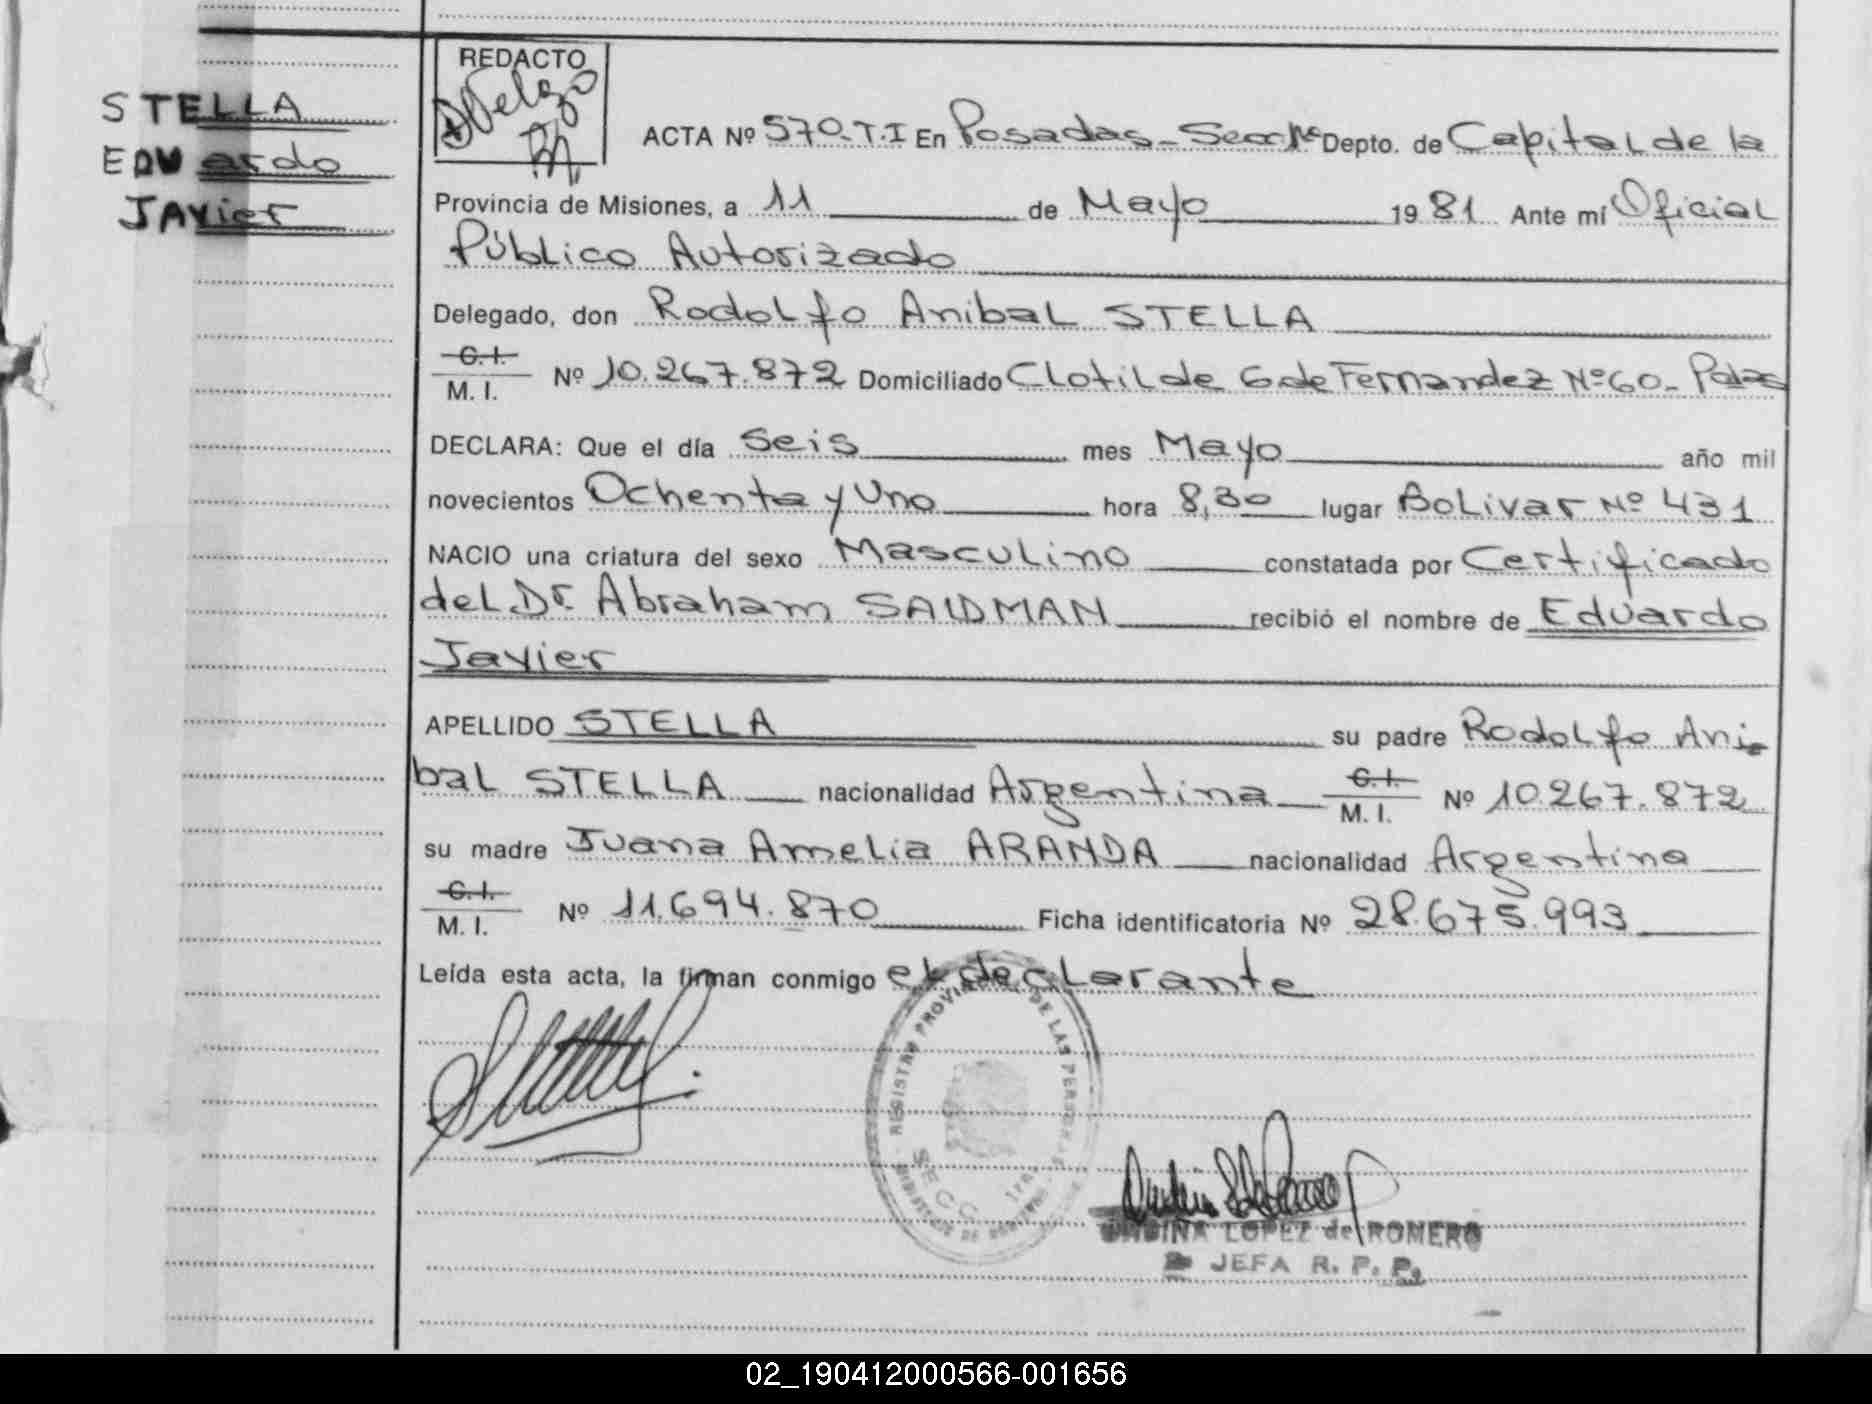 REDACTO
STELLA
Eduardo
Javier
ACTA Nº 570.T.I En Posadas - Secc 1ª Depto. de Capital de la
Provincia de Misiones, a 11 de Mayo 1981 Ante mí Oficial
Público Autorizado
Delegado, don Rodolfo Anibal STELLA
C.I. M.I. Nº 10.267.872 Domiciliado Clotilde G de Fernandez Nº 60 - Pdas
DECLARA: Que el día Seis mes Mayo año mil
novecientos Ochenta y Uno hora 8,30 lugar Bolivar Nº 431
NACIO una criatura del sexo Masculino constatada por Certificado
del Dr. Abraham SAIDMAN recibió el nombre de Eduardo
Javier
APELLIDO STELLA su padre Rodolfo Ani-
bal STELLA nacionalidad Argentina C.I. M.I. Nº 10.267.872
su madre Juana Amelia ARANDA nacionalidad Argentina
C.I. M.I. Nº 11.694.870 Ficha identificatoria Nº 28.675.993
Leída esta acta, la firman conmigo el declarante
REGISTRO PROVINCIAL DE LAS PERSONAS
SECC. 1ra
LOPEZ de ROMERO
JEFA R. P. P.
02_190412000566-001656